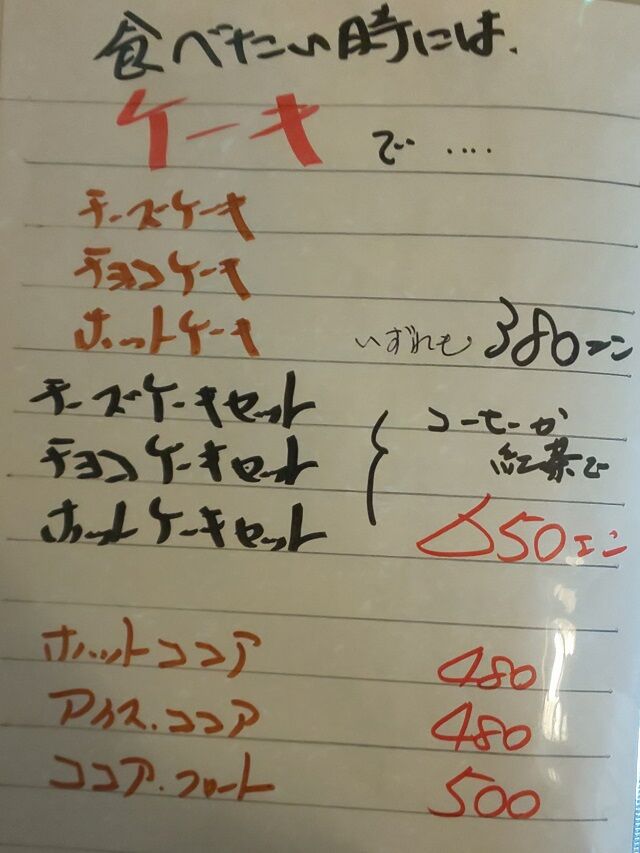 食べたい時には、
ケーキ で ‥‥
チーズケーキ
チョコケーキ
ホットケーキ いずれも 380エン
チーズケーキセット
チョコケーキセット
ホットケーキセット
コーヒーか
紅茶で
650エン
ホットココア 480
アイス・ココア 480
ココア・フロート 500